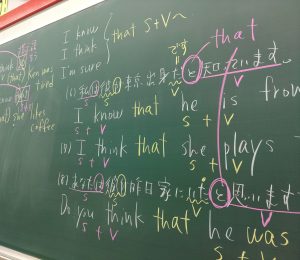 I know
I think
I'm sure
that S+V〜
です
that
(6) 私は彼が東京出身だと知っています。
I know that he is from
S V S + V
(7) I think that she plays
S V S + V
(8) あなたは彼が昨日家にいたと思いますか
Do you think that he was
S V S + V
coffee